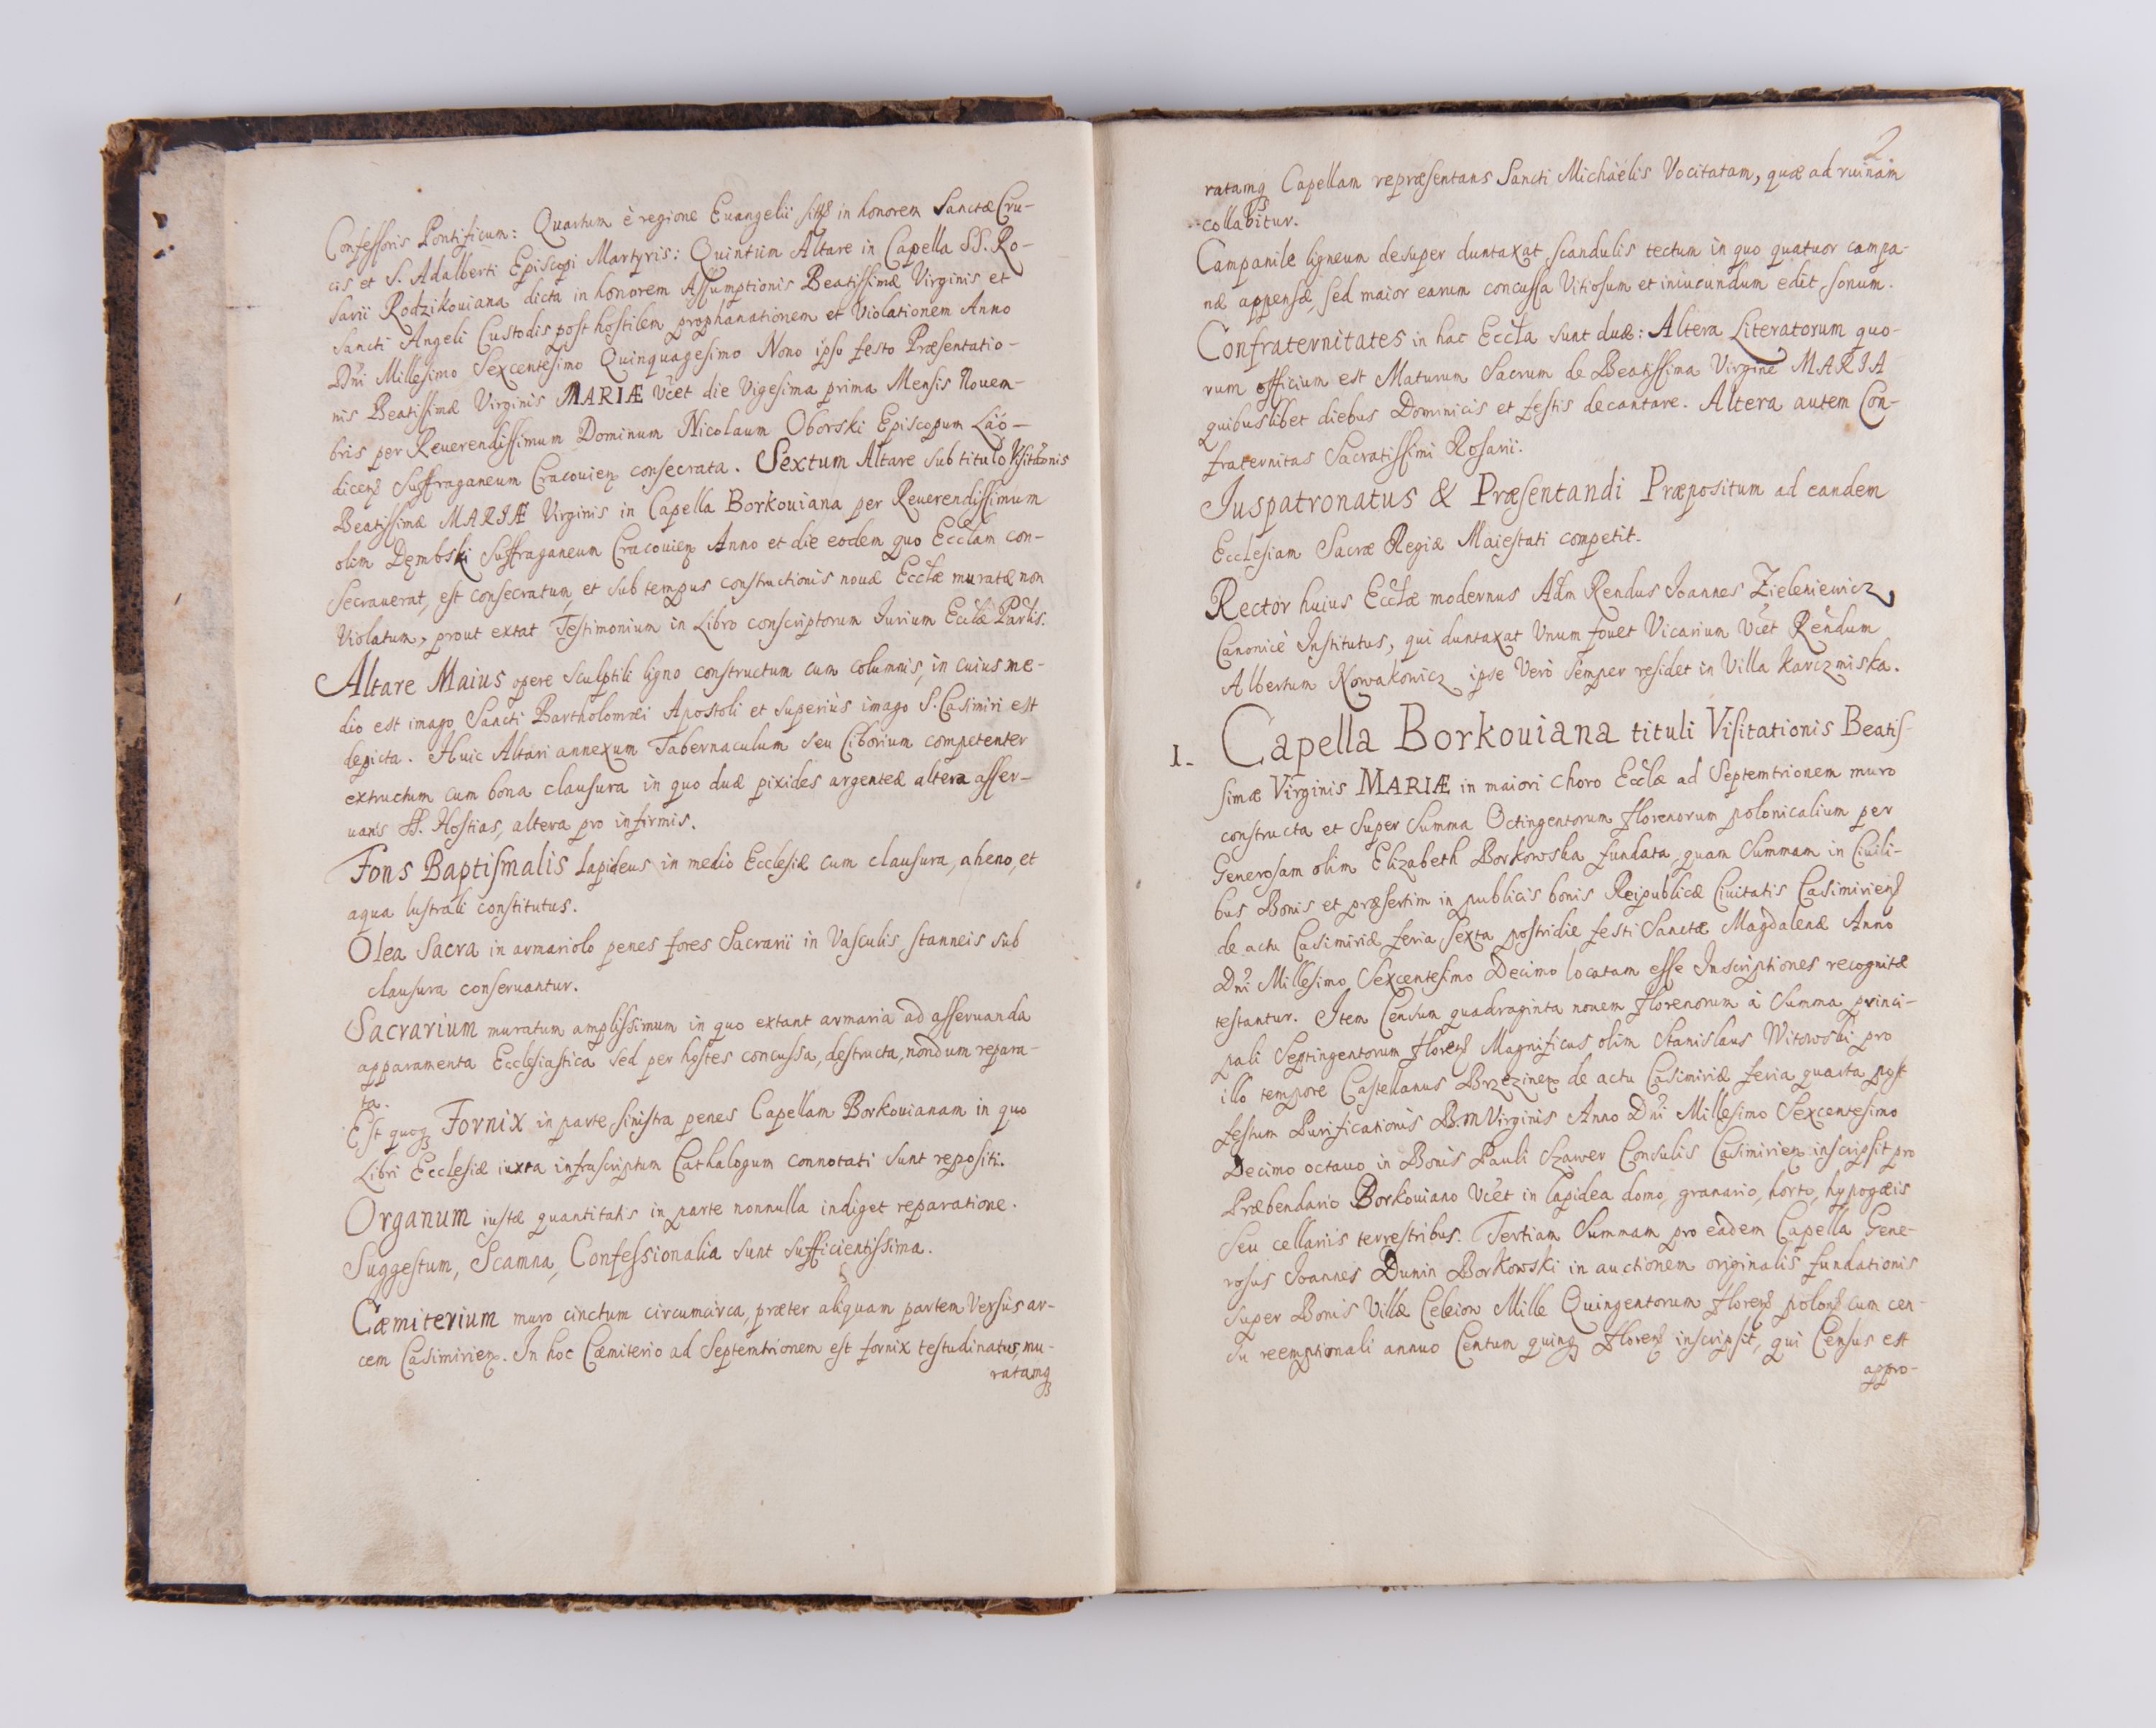 Confessoris Pontificum: Quartum è regione Euangelii in honorem Sanctæ Cru-
cis et S. Adalberti Episcopi Martyris: Quintum Altare in Capella SS. Ro-
sarii Rodzikouiana dicta in honorem Assumptionis Beatissimæ Virginis et
Sancti Angeli Custodis post hostilem prophanationem et Violationem Anno
Dñi Millesimo Sexcentesimo Quinquagesimo Nono ipso festo Præsentatio-
nis Beatissimæ Virginis MARIÆ Vcet die Vigesima prima Mensis Nouem-
bris per Reuerendissimum Dominum Nicolaum Oborski Episcopum Láo-
dicen Suffraganeum Cracouien consecrata. Sextum Altare sub titulo Visitãonis
Beatissimæ MARIÆ Virginis in Capella Borkouiana per Reuerendissimum
olim Dęmbski Suffraganeum Cracouien Anno et die eodem quo Eccłam con-
secrauerat, est consecratum, et sub tempus constructionis nouæ Eccłæ muratæ non
Violatum, prout extat Testimonium in Libro conscriptorum Iurium Eccłæ Parlis.
Altare Maius opere sculptili ligno constructum cum columnis, in cuius me-
dio est imago Sancti Bartholomæi Apostoli et superiùs imago S. Casimiri est
depicta. Huic Altari annexum Tabernaculum seu Ciborium competenter
extructum cum bona clausura in quo duæ pixides argenteæ altera asser-
uans SS. Hostias, altera pro infirmis.
Fons Baptismalis lapideus in medio Ecclesiæ cum clausura, aheno, et
aqua lustrali constitutus.
Olea Sacra in armariolo penes fores Sacrarii in Vasculis stanneis sub
clausura conseruantur.
Sacrarium muratum amplissimum in quo extant armaria ad asseruanda
apparamenta Ecclesiastica sed per hostes concussa, destructa, nondum repara-
ta.
Est quoq Fornix in parte sinistra penes Capellam Borkouianam in quo
Libri Ecclesiæ iuxta infrascriptum Cathalogum connotati sunt repositi.
Organum iustæ quantitatis in parte nonnulla indiget reparatione.
Suggestum, Scamna, Confessionalia sunt sufficientissima.
Cæmiterium muro cinctum circumcirca, præter aliquam partem Versùs ar-
cem Casimirien. In hoc Cæmiterio ad Septemtrionem est fornix testudinatus, mu-
ratamq
2
ratamq Capellam repræsentans Sancti Michäelis Vocitatam, quæ ad ruinam
collabitur.
Campanile ligneum desuper duntaxat scandulis tectum in quo quatuor campa-
næ appensæ, sed maior earum concussa Vitiosum et iniucundum edit sonum.
Confraternitates in hac Eccła sunt duæ: Altera Literatorum quo-
rum officium est Maturum Sacrum de Beatissima Virgine MARIA
quibuslibet diebus Dominicis et festis decantare. Altera autem Con-
fraternitas Sacratissimi Rosarii.
Iuspatronatus & Præsentandi Præpositum ad eandem
Ecclesiam Sacræ Regiæ Maiestati competit.
Rector huius Eccłæ modernus Adm Rendus Joannes Zieleniewicz,
Canonicè Institutus, qui duntaxat Vnum fouet Vicarium Vcet Rendum
Albertum Nowakowicz ipse Verò semper residet in Villa Karczmiska.
1. Capella Borkouiana tituli Visitationis Beatis-
simæ Virginis MARIÆ in maiori choro Eccłæ ad Septemtrionem muro
constructa et super Summa Octingentorum florenorum polonicalium per
Generosam olim Elizabeth Borkowska fundata, quam Summam in Ciuili-
bus Bonis et præsertim in publicis bonis Reipublicæ Ciuitatis Casimirien
de actu Casimiriæ feria Sexta postridie festi Sanctæ Magdalenæ Anno
Dñi Millesimo Sexcentesimo Decimo locatam esse Inscriptiones recognitæ
testantur. Item Censum quadraginta nouem florenorum à Summa princi-
pali Septingentorum floren Magnificus olim Stanislaus Witowski pro
illo tempore Castellanus Brzezinen de actu Casimiriæ feria quarta post
festum Purificationis B.M Virginis Anno Dñi Millesimo Sexcentesimo
Decimo octauo in Bonis Pauli Szawer Consulis Casimirien inscripsit pro
Præbendario Borkouiano Vcet in lapidea domo, granario, horto, hypogæis
seu cellariis terrestribus. Tertiam Summam pro eadem Capella Gene-
rosus Joannes Dunin Borkowski in auctionem originalis fundationis
super Bonis Villæ Celeiow Mille Quingentorum floren polon cum cen-
su reemptionali annuo Centum quinq floren inscripsit, qui Census est
appro-